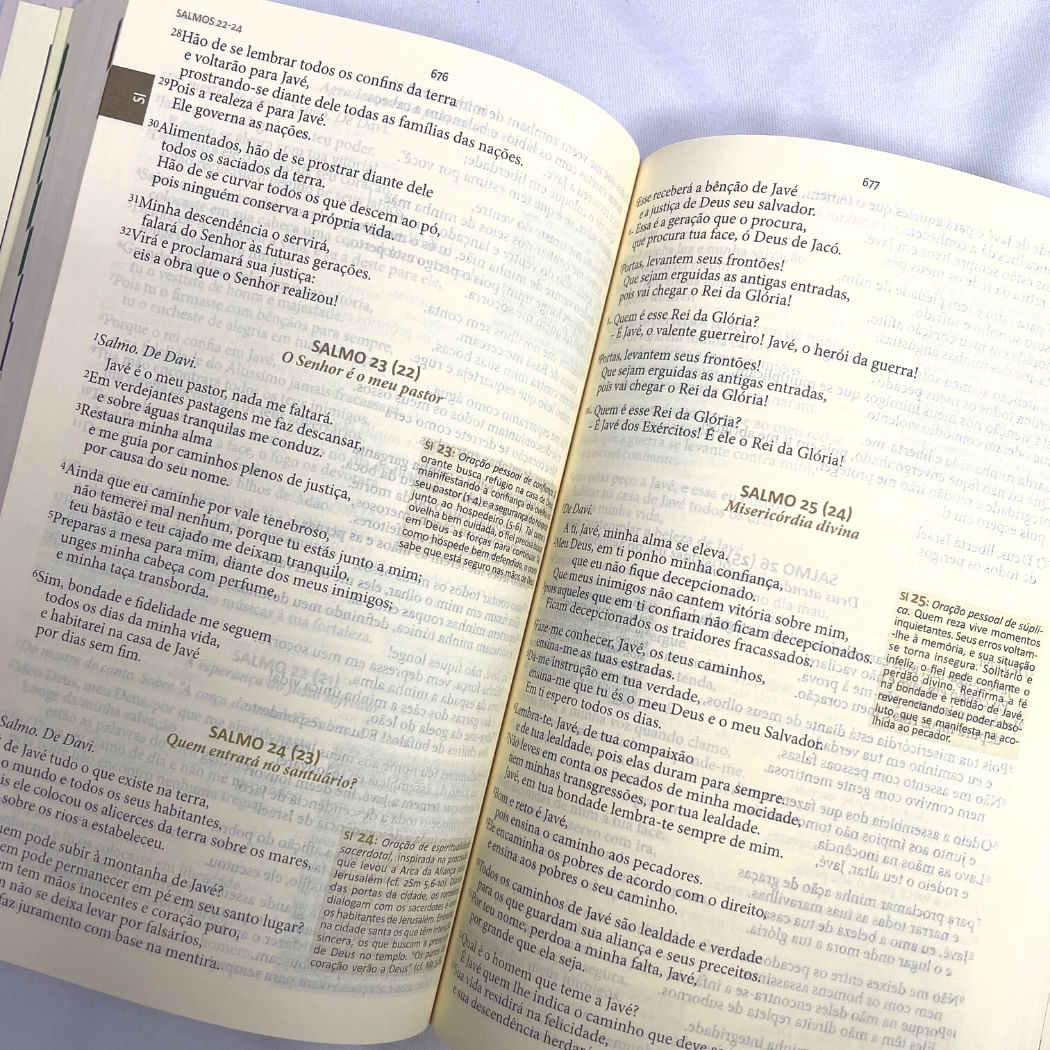 SALMOS 22-24
676
28Hão de se lembrar todos os confins da terra
e voltarão para Javé,
prostrando-se diante dele todas as famílias das nações.
29Pois a realeza é para Javé.
Ele governa as nações.
30Alimentados, hão de se prostrar diante dele
todos os saciados da terra.
Hão de se curvar todos os que descem ao pó,
pois ninguém conserva a própria vida.
31Minha descendência o servirá,
falará do Senhor às futuras gerações.
32Virá e proclamará sua justiça:
eis a obra que o Senhor realizou!
Sl
SALMO 23 (22)
O Senhor é o meu pastor
1Salmo. De Davi.
Javé é o meu pastor, nada me faltará.
2Em verdejantes pastagens me faz descansar,
e sobre águas tranquilas me conduz.
3Restaura minha alma
e me guia por caminhos plenos de justiça,
por causa do seu nome.
4Ainda que eu caminhe por vale tenebroso,
não temerei mal nenhum, porque tu estás junto a mim;
teu bastão e teu cajado me deixam tranquilo.
5Preparas a mesa para mim, diante dos meus inimigos;
unges minha cabeça com perfume,
e minha taça transborda.
6Sim, bondade e fidelidade me seguem
todos os dias da minha vida,
e habitarei na casa de Javé
por dias sem fim.
Sl 23: Oração pessoal de confiança.
orante busca refúgio na casa de Deus,
manifestando a confiança da ovelha
seu pastor (1-4) e a segurança do hóspede
junto ao hospedeiro (5-6). Tal como
ovelha bem cuidada, o fiel precisa buscar
em Deus as forças para continuar.
como hóspede bem defendido, o orante
sabe que está seguro nas mãos de Deus.
SALMO 24 (23)
Quem entrará no santuário?
Salmo. De Davi.
de Javé tudo o que existe na terra,
o mundo e todos os seus habitantes,
ele colocou os alicerces da terra sobre os mares,
sobre os rios a estabeleceu.
pode subir à montanha de Javé?
pode permanecer em pé em seu santo lugar?
tem mãos inocentes e coração puro,
não se deixa levar por falsários,
faz juramento com base na mentira.
Sl 24: Oração de espiritualidade
sacerdotal, inspirada na procissão
que levou a Arca da Aliança para
Jerusalém (cf. 2Sm 5,6-10). Diante
das portas da cidade, os romeiros
dialogam com os sacerdotes e com
os habitantes de Jerusalém. Entram
na cidade santa os que têm intenção
sincera, os que buscam a presença
de Deus no templo. "Os puros de
coração verão a Deus" (cf. Mt
677
Esse receberá a bênção de Javé
e a justiça de Deus seu salvador.
Essa é a geração que o procura,
que procura tua face, ó Deus de Jacó.
Portas, levantem seus frontões!
Que sejam erguidas as antigas entradas,
pois vai chegar o Rei da Glória!
– Quem é esse Rei da Glória?
– É Javé, o valente guerreiro! Javé, o herói da guerra!
Portas, levantem seus frontões!
Que sejam erguidas as antigas entradas,
pois vai chegar o Rei da Glória!
– Quem é esse Rei da Glória?
– É Javé dos Exércitos! É ele o Rei da Glória!
SALMO 25 (24)
Misericórdia divina
De Davi.
A ti, Javé, minha alma se eleva.
Meu Deus, em ti ponho minha confiança,
que eu não fique decepcionado.
Que meus inimigos não cantem vitória sobre mim,
pois aqueles que em ti confiam não ficam decepcionados.
Ficam decepcionados os traidores fracassados.
Faze-me conhecer, Javé, os teus caminhos,
ensina-me as tuas estradas.
Dá-me instrução em tua verdade,
ensina-me que tu és o meu Deus e o meu Salvador.
Em ti espero todos os dias.
Lembra-te, Javé, de tua compaixão
e de tua lealdade, pois elas duram para sempre.
Não leves em conta os pecados de minha mocidade,
nem minhas transgressões, por tua lealdade.
Javé, em tua bondade lembra-te sempre de mim.
Bom e reto é Javé,
pois ensina o caminho aos pecadores.
Ele encaminha os pobres de acordo com o direito,
e ensina aos pobres o seu caminho.
Todos os caminhos de Javé são lealdade e verdade
para os que guardam sua aliança e seus preceitos.
Por teu nome, perdoa a minha falta, Javé,
por grande que ela seja.
Qual é o homem que teme a Javé?
É Javé quem lhe indica o caminho que deve
Sua vida residirá na felicidade,
e sua descendência herdará
Sl 25: Oração pessoal de súpli-
ca. Quem reza vive momentos
inquietantes. Seus erros voltam-
-lhe à memória, e sua situação
se torna insegura. Solitário e
infeliz, o fiel pede confiante o
perdão divino. Reafirma a fé
na bondade e retidão de Javé,
reverenciando seu poder abso-
luto, que se manifesta na aco-
lhida ao pecador.